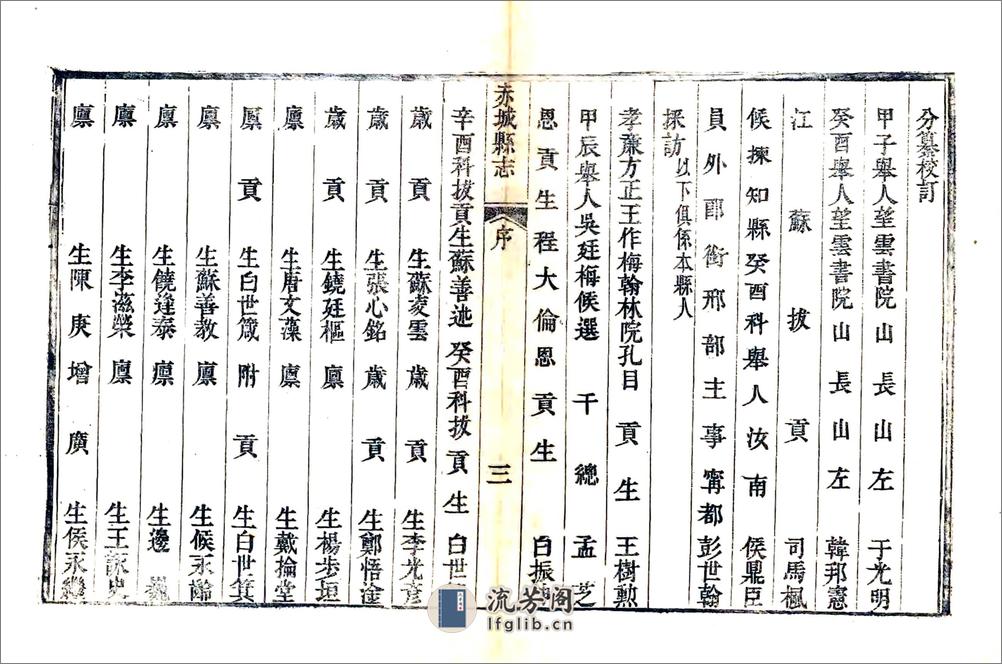 分纂校訂
甲子舉人望雲書院山長山左 于光明
癸酉舉人望雲書院山長山左 韓邦憲
江蘇拔貢 司馬楓
候揀知縣癸酉科舉人汝南 侯鼎臣
員外郎銜刑部主事甯都 彭世翰
採訪以下俱係本縣人
孝廉方正王作梅翰林院孔目貢生 王樹勲
甲辰舉人吳廷梅候選千總 孟芝
恩貢生程大倫恩貢生 白振
赤城縣志 序 三
辛酉科拔貢生蘇善述 癸酉科拔貢生 白世
歲貢生蘇凌雲 歲貢生李光彥
歲貢生張心銘 歲貢生鄭悟淦
歲貢生饒廷樞 廩生楊步垣
廩生唐文藻 廩生戴掄堂
廩貢生白世箴 附貢生白世箕
廩生蘇善教 廩生候永齡
廩生饒逢泰 廩生邊
廩生李滋榮 廩生王
廩生陳庚增 廣生侯永繼
流芳阁
lfglib.cn